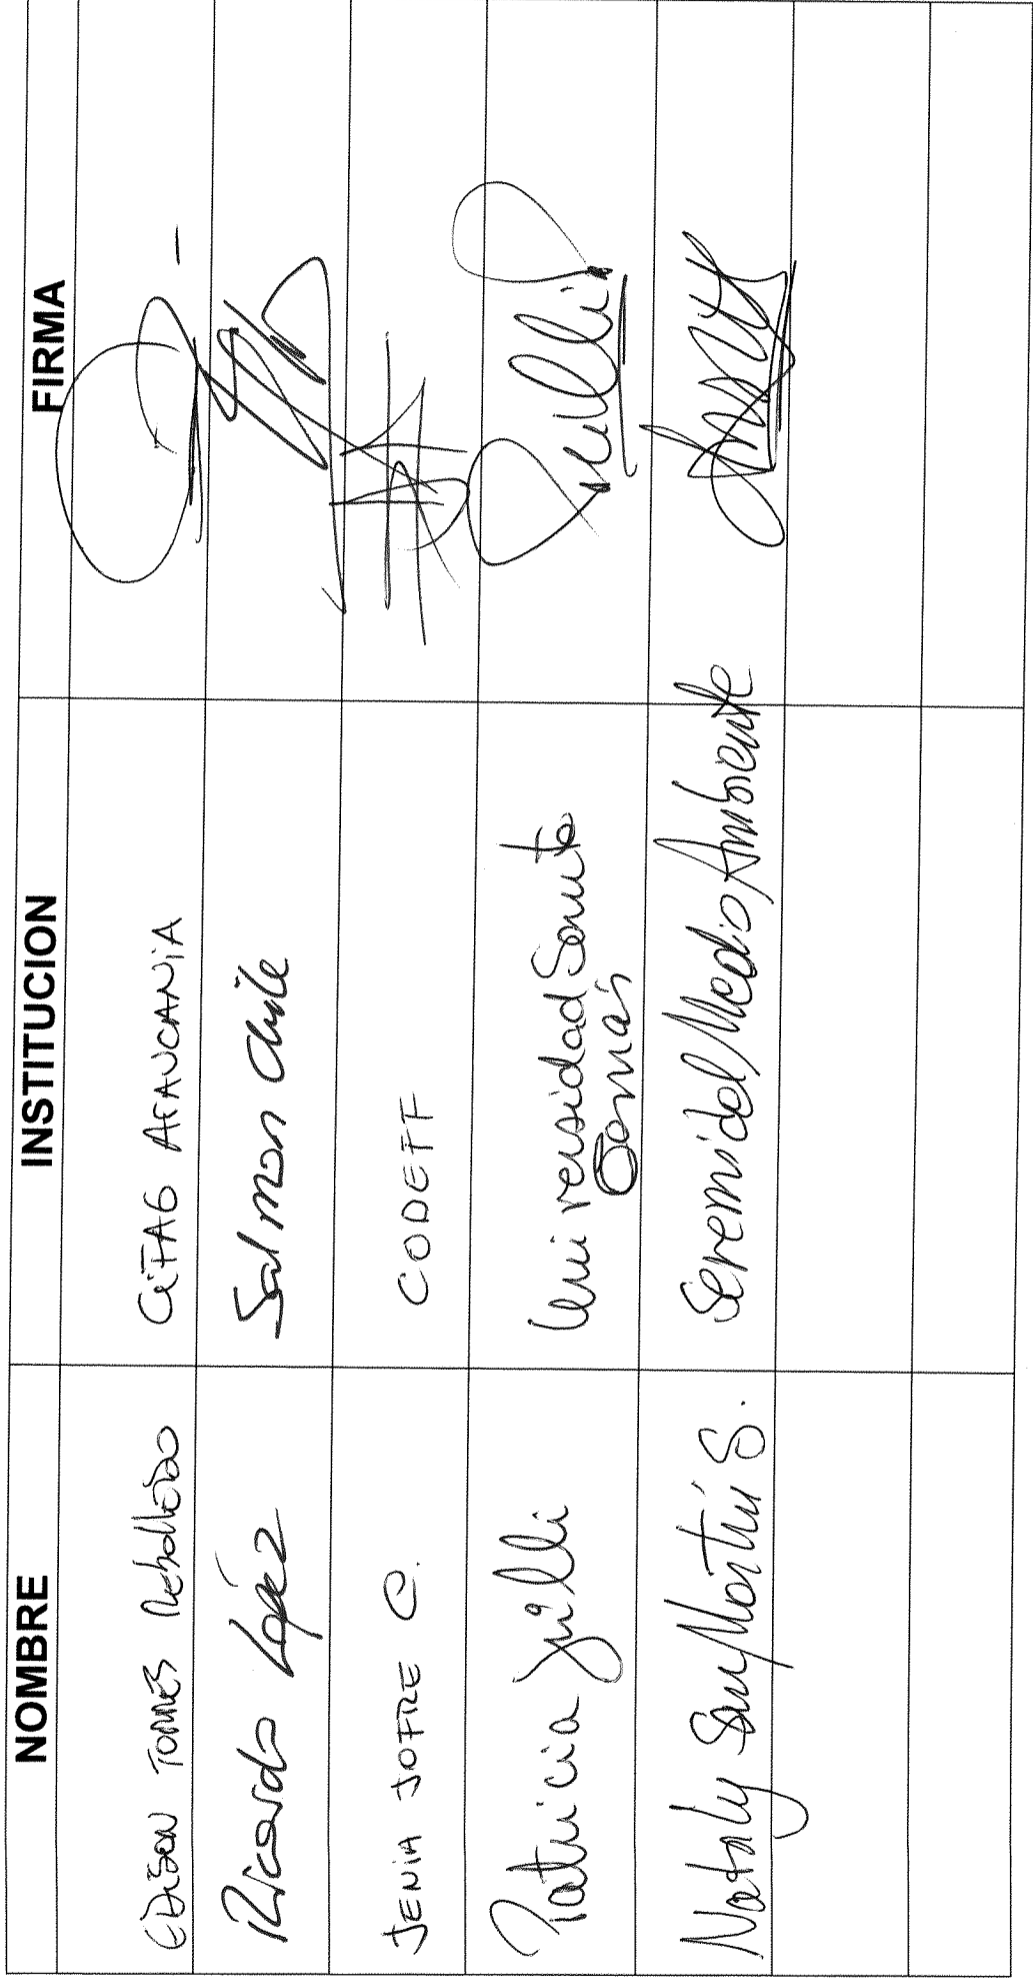 NOMBRE INSTITUCION FIRMA
EDISON TORRES Rebolledo ARAUCANIA
Ricardo López Salmon Chile
JENIA JOFRE C. CODEFF
Patricia Universidad Santo
Tomás
Nataly San Martín S. Seremi del Medio Ambiente